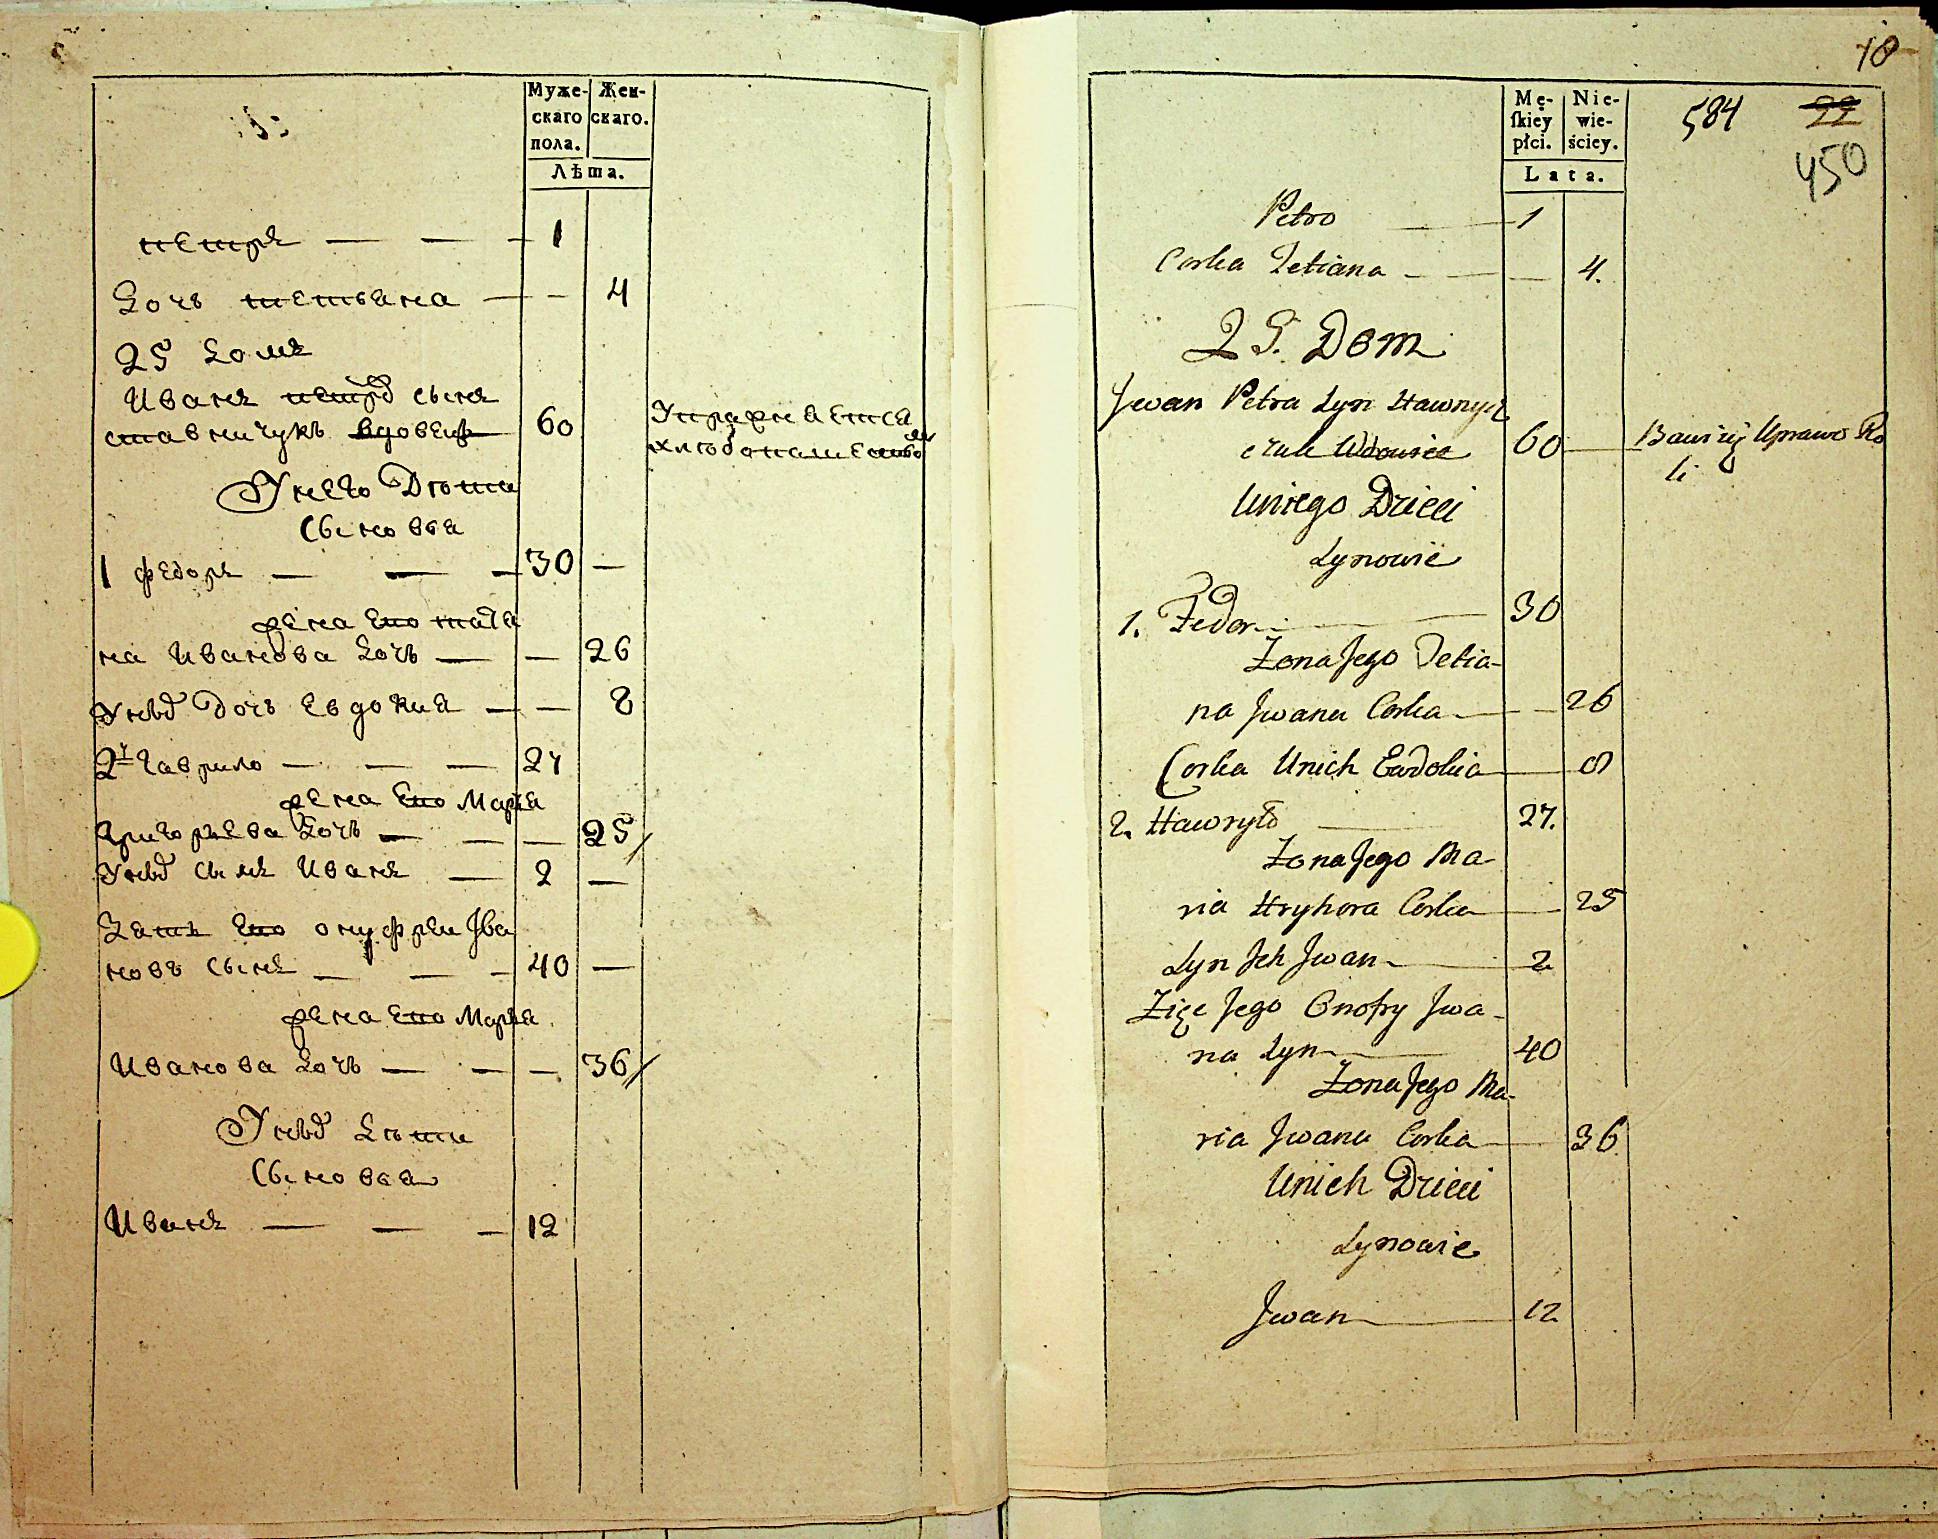 Муже-
скаго
пола.
Жен-
скаго.
Лѣта.
петръ 1
дочъ тетьяна 4
25 домъ
Иванъ петров сынъ
ставничукъ вдовец 60
Упражняется
хлѣбопашеством
У него Дѣти
Сыновья
1 федоръ 30
жена его татя
на Иванова дочъ 26
У ных дочъ Евдокия 8
2й гаврило 27
жена его Марья
григорьева дочъ 25
У ных сынъ Иванъ 2
Зять его онуфреи Ива
новъ сынъ 40
жена его Марья
Иванова дочъ 36
У ных дѣти
Сыновья
Иванъ 12
18
Mę-
skiey
płci.
Nie-
wie-
ściey.
Lata.
584
22
450
Petro 1
Corka Tetiana 4.
25. Dom
Jwan Petra Syn Stawnyi
czuk Wdowiec 60 Bawi się Uprawo Ro
li
U niego Dzieci
Synowie
1. Fedor 30
Żona Jego Tetia-
na Jwana Corka 26
Corka Unich Ewdokia 8
2. Hawryło 27.
Żona Jego Ma-
ria Hryhora Corka 25
Syn Jch Jwan 2
Zięc Jego Onofry Jwa-
na Syn 40
Żona Jego Ma-
ria Jwana Corka 36
Unich Dzieci
Synowie
Jwan 12